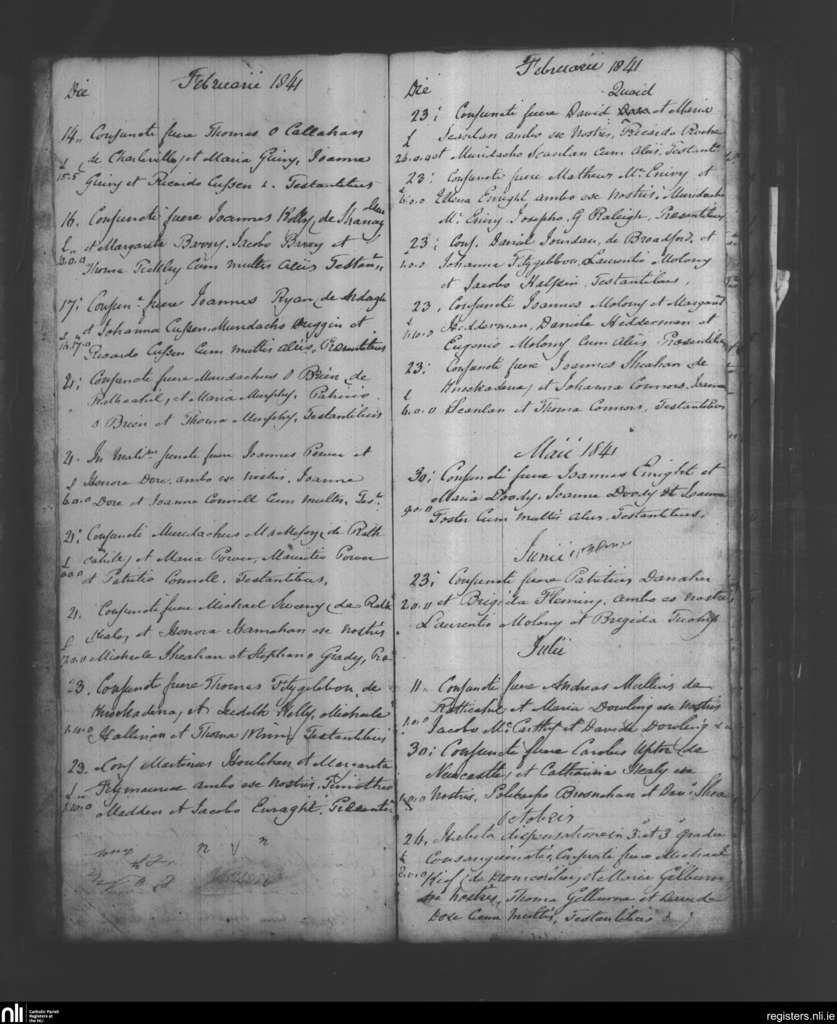 Die Februarii 1841
14. Conjuncti fuere Thomas O Callahan
de Charleville, et Maria Guiry, Joanne
Guiry et Ricardo Cussen &. Testantibus
16. Conjuncti fuere Joannes Kelly, de Shanagolden
£ et Margareta Brovy, Jacobo Brovy et
2.0.0 Thoma Fickley Cum multis Aliis Testan.
17; Conjun. fuere Joannes Ryan, de Ardagh
£ et Johanna Cussen, Murdacho Quiggin et
Ricardo Cussen Cum multis aliis, Presentibus
21; Conjuncti fuere Murdachus O Brien, de
Rathcahil, et Maria Murphy, Patricio
O Brien et Thoma Murphy, Testantibus
21. In Matri. juncti fuere Joannes Power et
£ Honora Dore, ambo ex nostris, Joanne
6.0.0 Dore et Joanne Connell Cum multis. Tes.
21; Conjuncti Murdachus de Rath
£ cahile, et Maria Power, Mauritio Power
et Patritio Connell, Testantibus,
21. Conjuncti fuere Michael Sweany, de Rath
£ keale, et Honora Hanrahan ex nostris
Michaele Sheahan et Stephano Grady, Pre
23. Conjuncti fuere Thomas Fitzgibbon, de
Knockadena, et Judith Kelly, Michaele
1.10.0 Hallinan et Thoma Testantibus
23. Conj Martinus Houlihan et Margareta
£ Fitzmaurice ambo ex nostris, Timotheo
Madden et Jacobo Enraght, Presenti
Februarii 1841
Die Quaid
23; Conjuncti fuere David Dore et Maria
£ Scanlan ambo ex nostris, Ricardo Roche
et Murdacho Scanlan Cum aliis, Testanti
23; Conjuncti fuere Matheus Mc Eniry et
£ Ellena Enright, ambo ex nostris, Murdacho
6.0.0 Mc Eniry Josepho G. Raleigh, Presentibus
23; Conj. Daniel Jourdan, de Broadford, et
1.0.0 Johanna Fitzgibbon, Laurentio Molony
et Jacobo Halpin, Testantibus,
23, Conjuncti Joannes Molony et Margaret
£ Hedderman, Daniele Hedderman et
1.10.0 Eugenio Molony Cum Aliis Presentibus
23; Conjuncti fuere Joannes Sheahan de
£ Knockadena, et Johanna Connors, Joanne
6.0.0 Scanlan et Thoma Connors, Testantibus
Maii 1841
30; Conjuncti fuere Joannes Enright et
Maria Doody, Joanne Doody et Joanne
Foster Cum multis aliis, Testantibus,
Junii
23; Conjuncti fuere Patritius Danaher
2.0.0 et Brigida Fleming, ambo ex nostris
Laurentio Molony et Brigida Twohig
Julii
11. Conjuncti fuere Andreas Mullins de
Rathcahil, et Maria Dowling ex nostris
1.0.0 Jacobo Mc Carthy et Davide Dowling &
30; Conjuncti fuere Carolus Upton, de
Newcastle, et Catharina Healy ex
nostris, Policarpo Brosnahan et Dav. Shea
Octobris
24, Habita dispensatione in 3° et 3° gradu
£ Consanguinitatis, Conjuncti fuere Michael
2.0.0 Kief, de Dromcoliher, et Maria Gilburn
ex nostris, Thoma Gilburne et Davide
Dore Cum multis, Testantibus
nli
Catholic Parish
Registers at
the NLI
registers.nli.ie